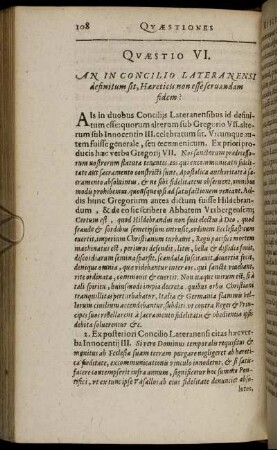 108 QVÆSTIONES
QVÆSTIO VI.
AN IN CONCILIO LATERANENSI
definitum sit, Hæreticis non esse seruandam
fidem?
Ais in duobus Concilijs Lateranensibus id defini-
tum esse: quorum alterum sub Gregorio VII. alte-
rum sub Innocentio III. celebratum sit. Vtrumque au-
tem fuisse generale, seu œcumenicum. Ex priori pro-
ducis hæc verba Gregorij VII. Nos sanctorum prædecesso-
rum nostrorum statuta tenentes, eos qui excommunicatis fidelitate
aut sacramento constricti sunt, Apostolica authoritate à sacra-
mento absoluimus, & ne sibi fidelitatem obseruent, omnibus
modis prohibemus, quousque ipsi ad satisfactionem veniant. Ad-
dis hunc Gregorium antea dictum fuisse Hildebran-
dum, & de eo sic scribere Abbatem Vrsbergensem,
Certum est, quod Hildebrandus non fuit electus à Deo, quod
fraude & sordibus semetipsum intrusit, ordinem Ecclesiasticum
euertit, imperium Christianum turbauit, Regis pacifici mortem
machinatus est, periuros defendit, lites, bella & dissidia fouit,
discordiarum semina sparsit, scandala suscitauit, diuortia fecit,
denique omnia, quæ videbantur inter eos, qui sanctè viuebant,
ritè ordinata, commouit & euertit. Non itaque mirum est, si à
tali spiritu, huiusmodi impia decreta, quibus orbis Christiani
tranquillitas perturbabatur, Italia & Germania flammis vel-
lorum ciuilium accendebantur: subditi in contra Reges & Princi-
pes suos rebellarent à sacramento fidelitatis & obedientia ipsis
debita soluerentur &c.
2. Ex posteriori Concilio Lateranensi citas hæc ver-
ba Innocentij III. Si verò Dominus temporalis requisitus &
monitus ab Ecclesia suam terram purgare neglexerit ab hereti-
ca fœditate, excommunicationis vinculo innodetur, & si satis-
facere contempserit infra annum, significetur hoc summo Ponti-
fici, vt ex tunc ipse Vasallos ab eius fidelitate denunciet abso-
lutos,